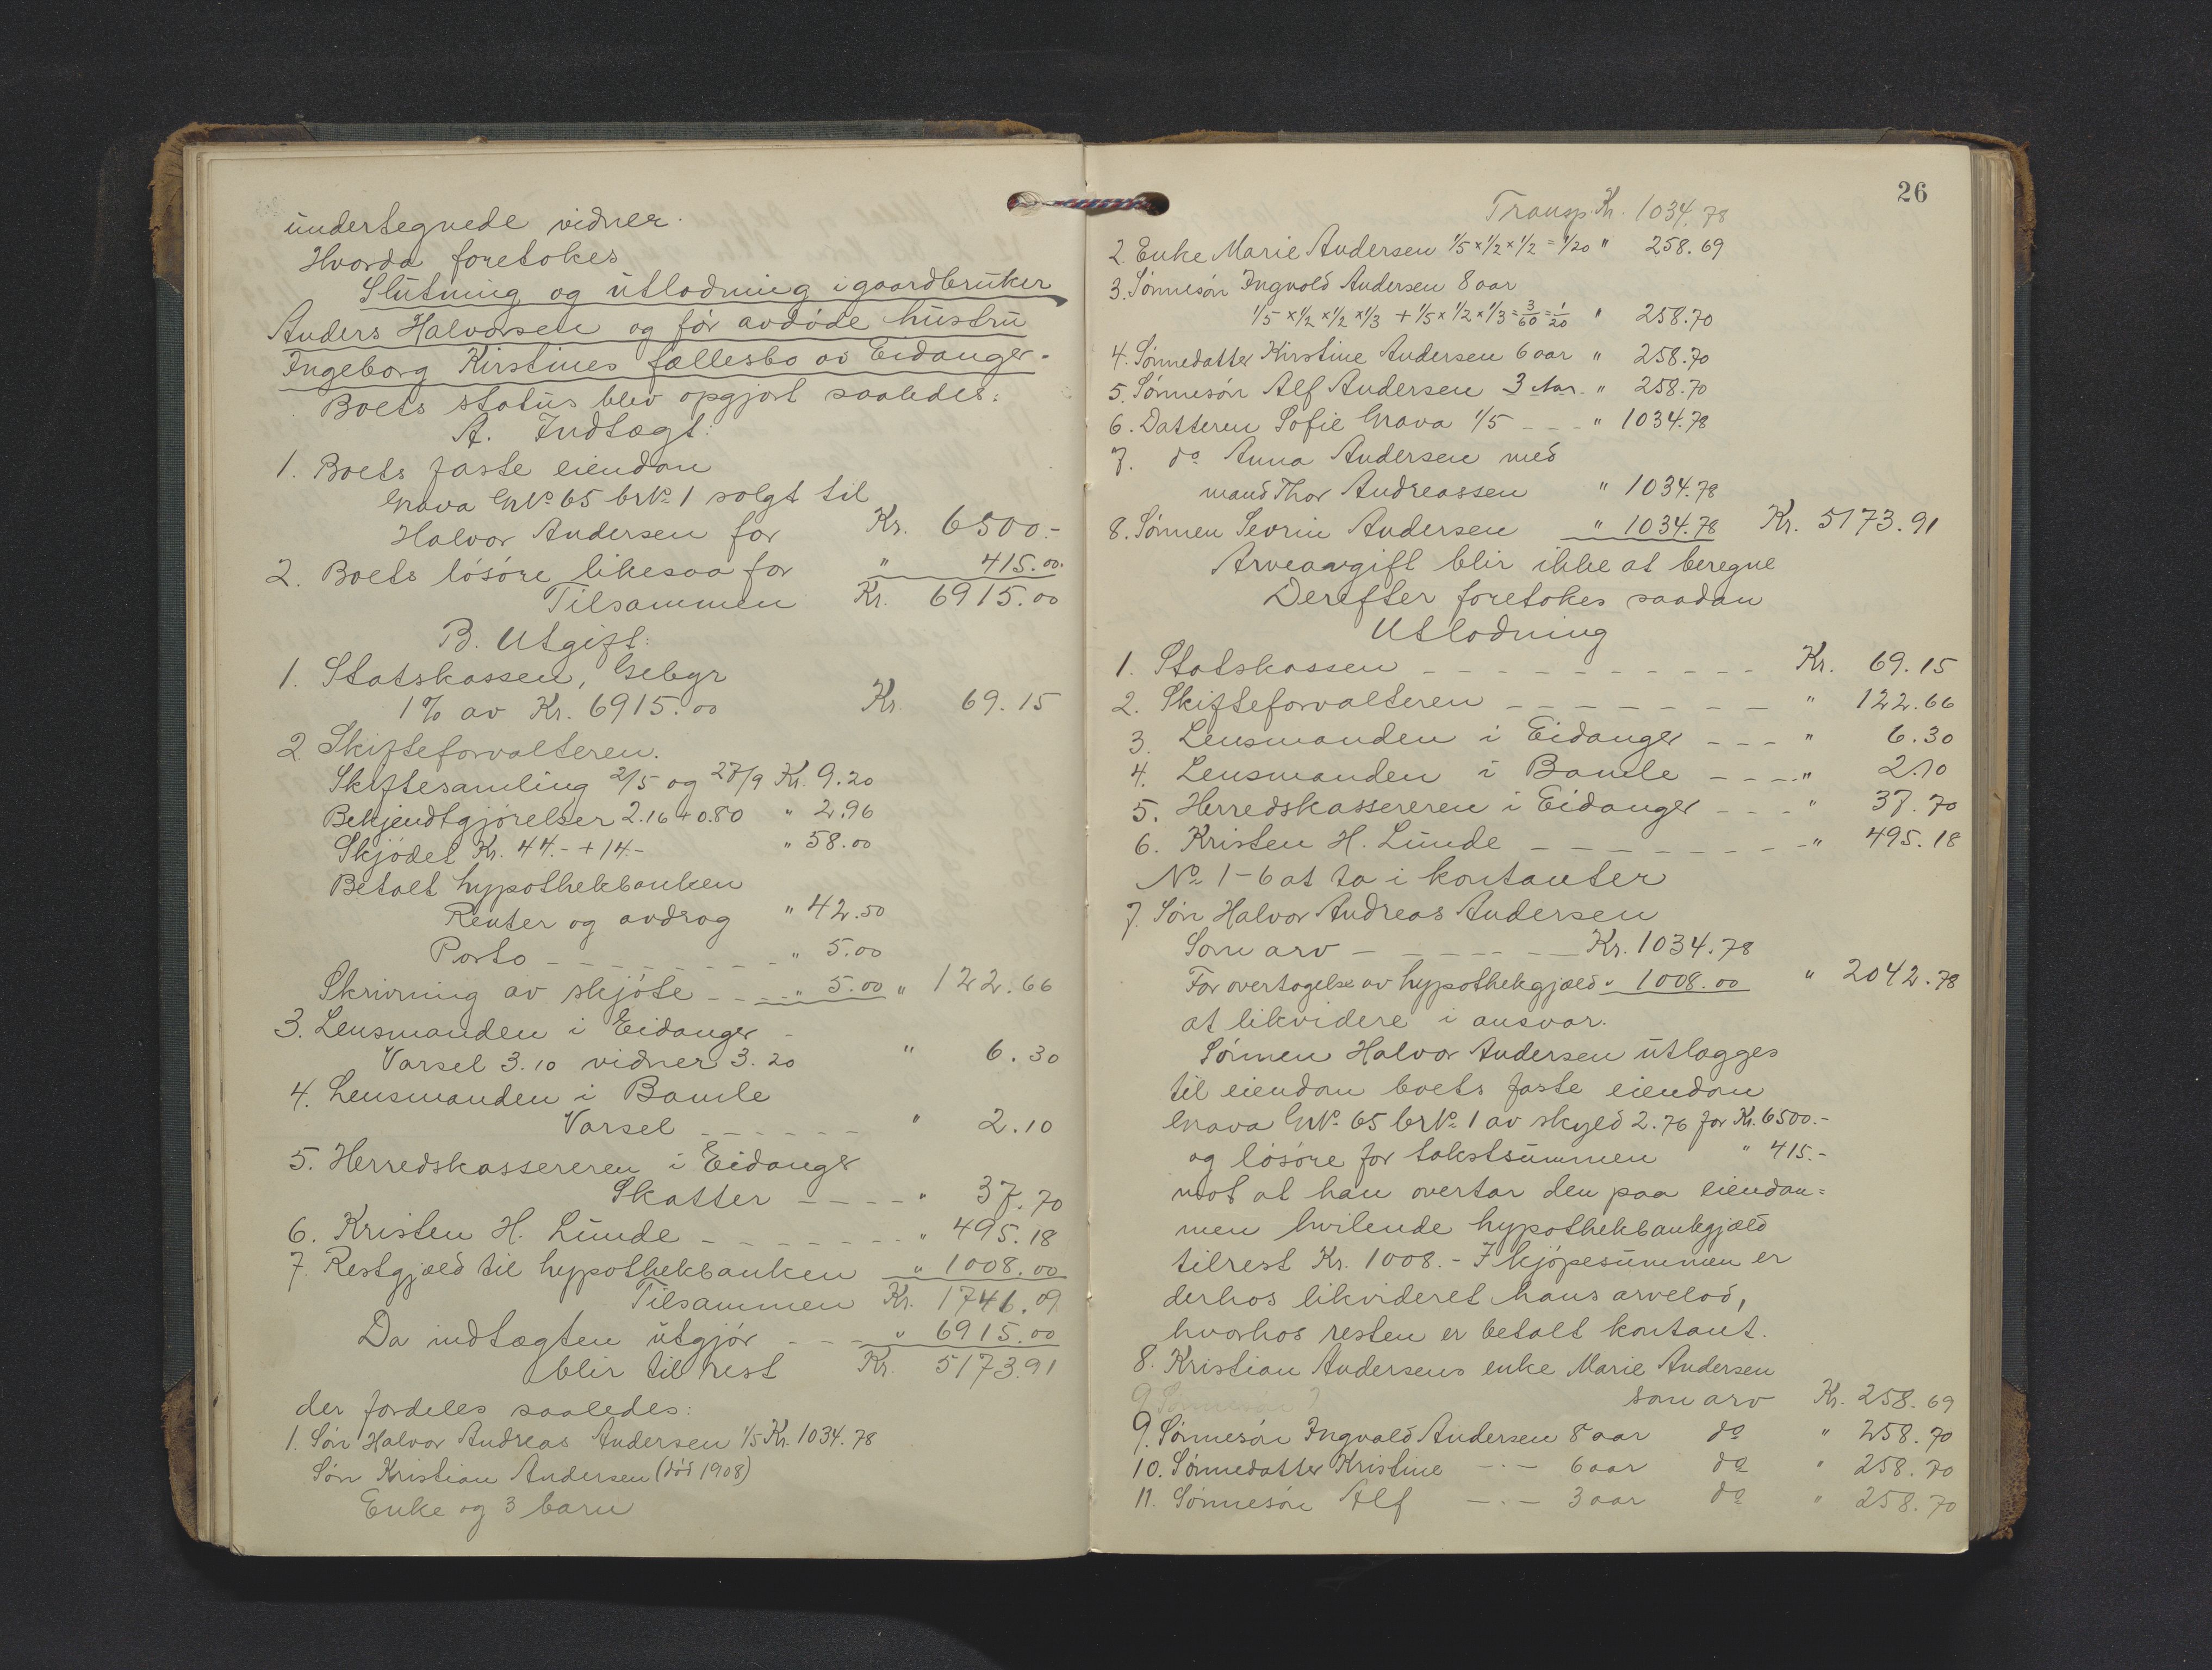 undertegnede vidner.
Hvorda foretokes
Slutning og utlodning i gaardbruker
Anders Halvorsen og før avdøde hustru
Ingeborg Kirstines fællesbo av Eidanger.
Boets status blev opgjort saaledes:
A. Indtægt:
1. Boets faste eiendom
Grava GrNo. 65 brNo. 1 solgt til
Halvor Andersen for Kr. 6500.-
2. Boets løsøre likesaa for " 415.00.
Tilsammen Kr. 6915.00
B. Utgift:
1. Statskassen, Gebyr
1% av Kr. 6915.00 Kr. 69.15
2 Skifteforvalteren.
Skiftesamling 2/5 og 27/9 Kr. 9.20
Bekjendtgjørelser 2.16 + 0.80 " 2.96
Skjødet Kr. 44.- + 14.- " 58.00
Betalt hypothekbanken
Renter og avdrag " 42.50
Porto - - - - - - - " 5.00
Skrivning av skjøte - - - " 5.00 " 122.66
3. Lensmanden i Eidanger -
Varsel 3.10 vidner 3.20 " 6.30
4. Lensmanden i Bamle
Varsel - - - - - - " 2.10
5. Herredskassereren i Eidanger
Skatter - - - - " 37.70
6. Kristen H. Lunde - - - - - - - " 495.18
7. Restgjæld til hypothekbanken " 1008.00
Tilsammen Kr. 1741.09
Da indtægten utgjør - - - " 6915.00
blir til rest Kr. 5173.91
der fordeles saaledes:
1. Søn Halvor Andreas Andersen 1/5 Kr. 1034.78
Søn Kristian Andersen (død 1908)
Enke og 3 barn
26
Transp. Kr. 1034.78
2. Enke Marie Andersen 1/5 x 1/2 x 1/2 = 1/20 " 258.69
3. Sønnesøn Ingvald Andersen 8 aar
1/5 x 1/2 x 1/2 x 1/3 + 1/5 x 1/2 x 1/3 = 3/60 = 1/20 " 258.70
4. Sønnedatter Kirstine Andersen 6 aar " 258.70
5. Sønnesøn Alf Andersen 3 Aar. " 258.70
6. Datteren Sofie Grava 1/5 - - - " 1034.78
7. do Anna Andersen med
mand Thor Andreassen " 1034.78
8. Sønnen Sevrin Andersen " 1034.78 Kr. 5173.91
Arveavgift blir ikke at beregne
Derefter foretokes saadan
Utlodning
1. Statskassen - - - - - - - - - - Kr. 69.15
2. Skifteforvalteren - - - - - - - " 122.66
3. Lensmanden i Eidanger - - - " 6.30
4. Lensmanden i Bamle - - - - " 2.10
5. Herredskassereren i Eidanger - - - " 37.70
6. Kristen H. Lunde - - - - - - - - " 495.18
No 1-6 at ta i kontanter
7. Søn Halvor Andreas Andersen
Som arv - - - - - - Kr. 1034.78
For overtagelse av hypothekgjæld " 1008.00 " 2042.78
at likvidere i ansvar.
Sønnen Halvor Andersen utlægges
til eiendom boets faste eiendom
Grava GrNo. 65 brNo. 1 av skyld 2.76 for Kr. 6500.-
og løsøre for takstsummen " 415.-
mot at han overtar den paa eiendom=
men hvilende hypothekbankgjæld
tilrest Kr. 1008.- I kjøpesummen er
derhos likvideret hans arvelod,
hvorhos resten er betalt kontant.
8. Kristian Andersens enke Marie Andersen
som arv Kr. 258.69
9. Sønnesøn Ingvald Andersen 8 aar do " 258.70
10. Sønnedatter Kristine - . - 6 aar do " 258.70
11. Sønnesøn Alf - . - 3 aar do " 258.70